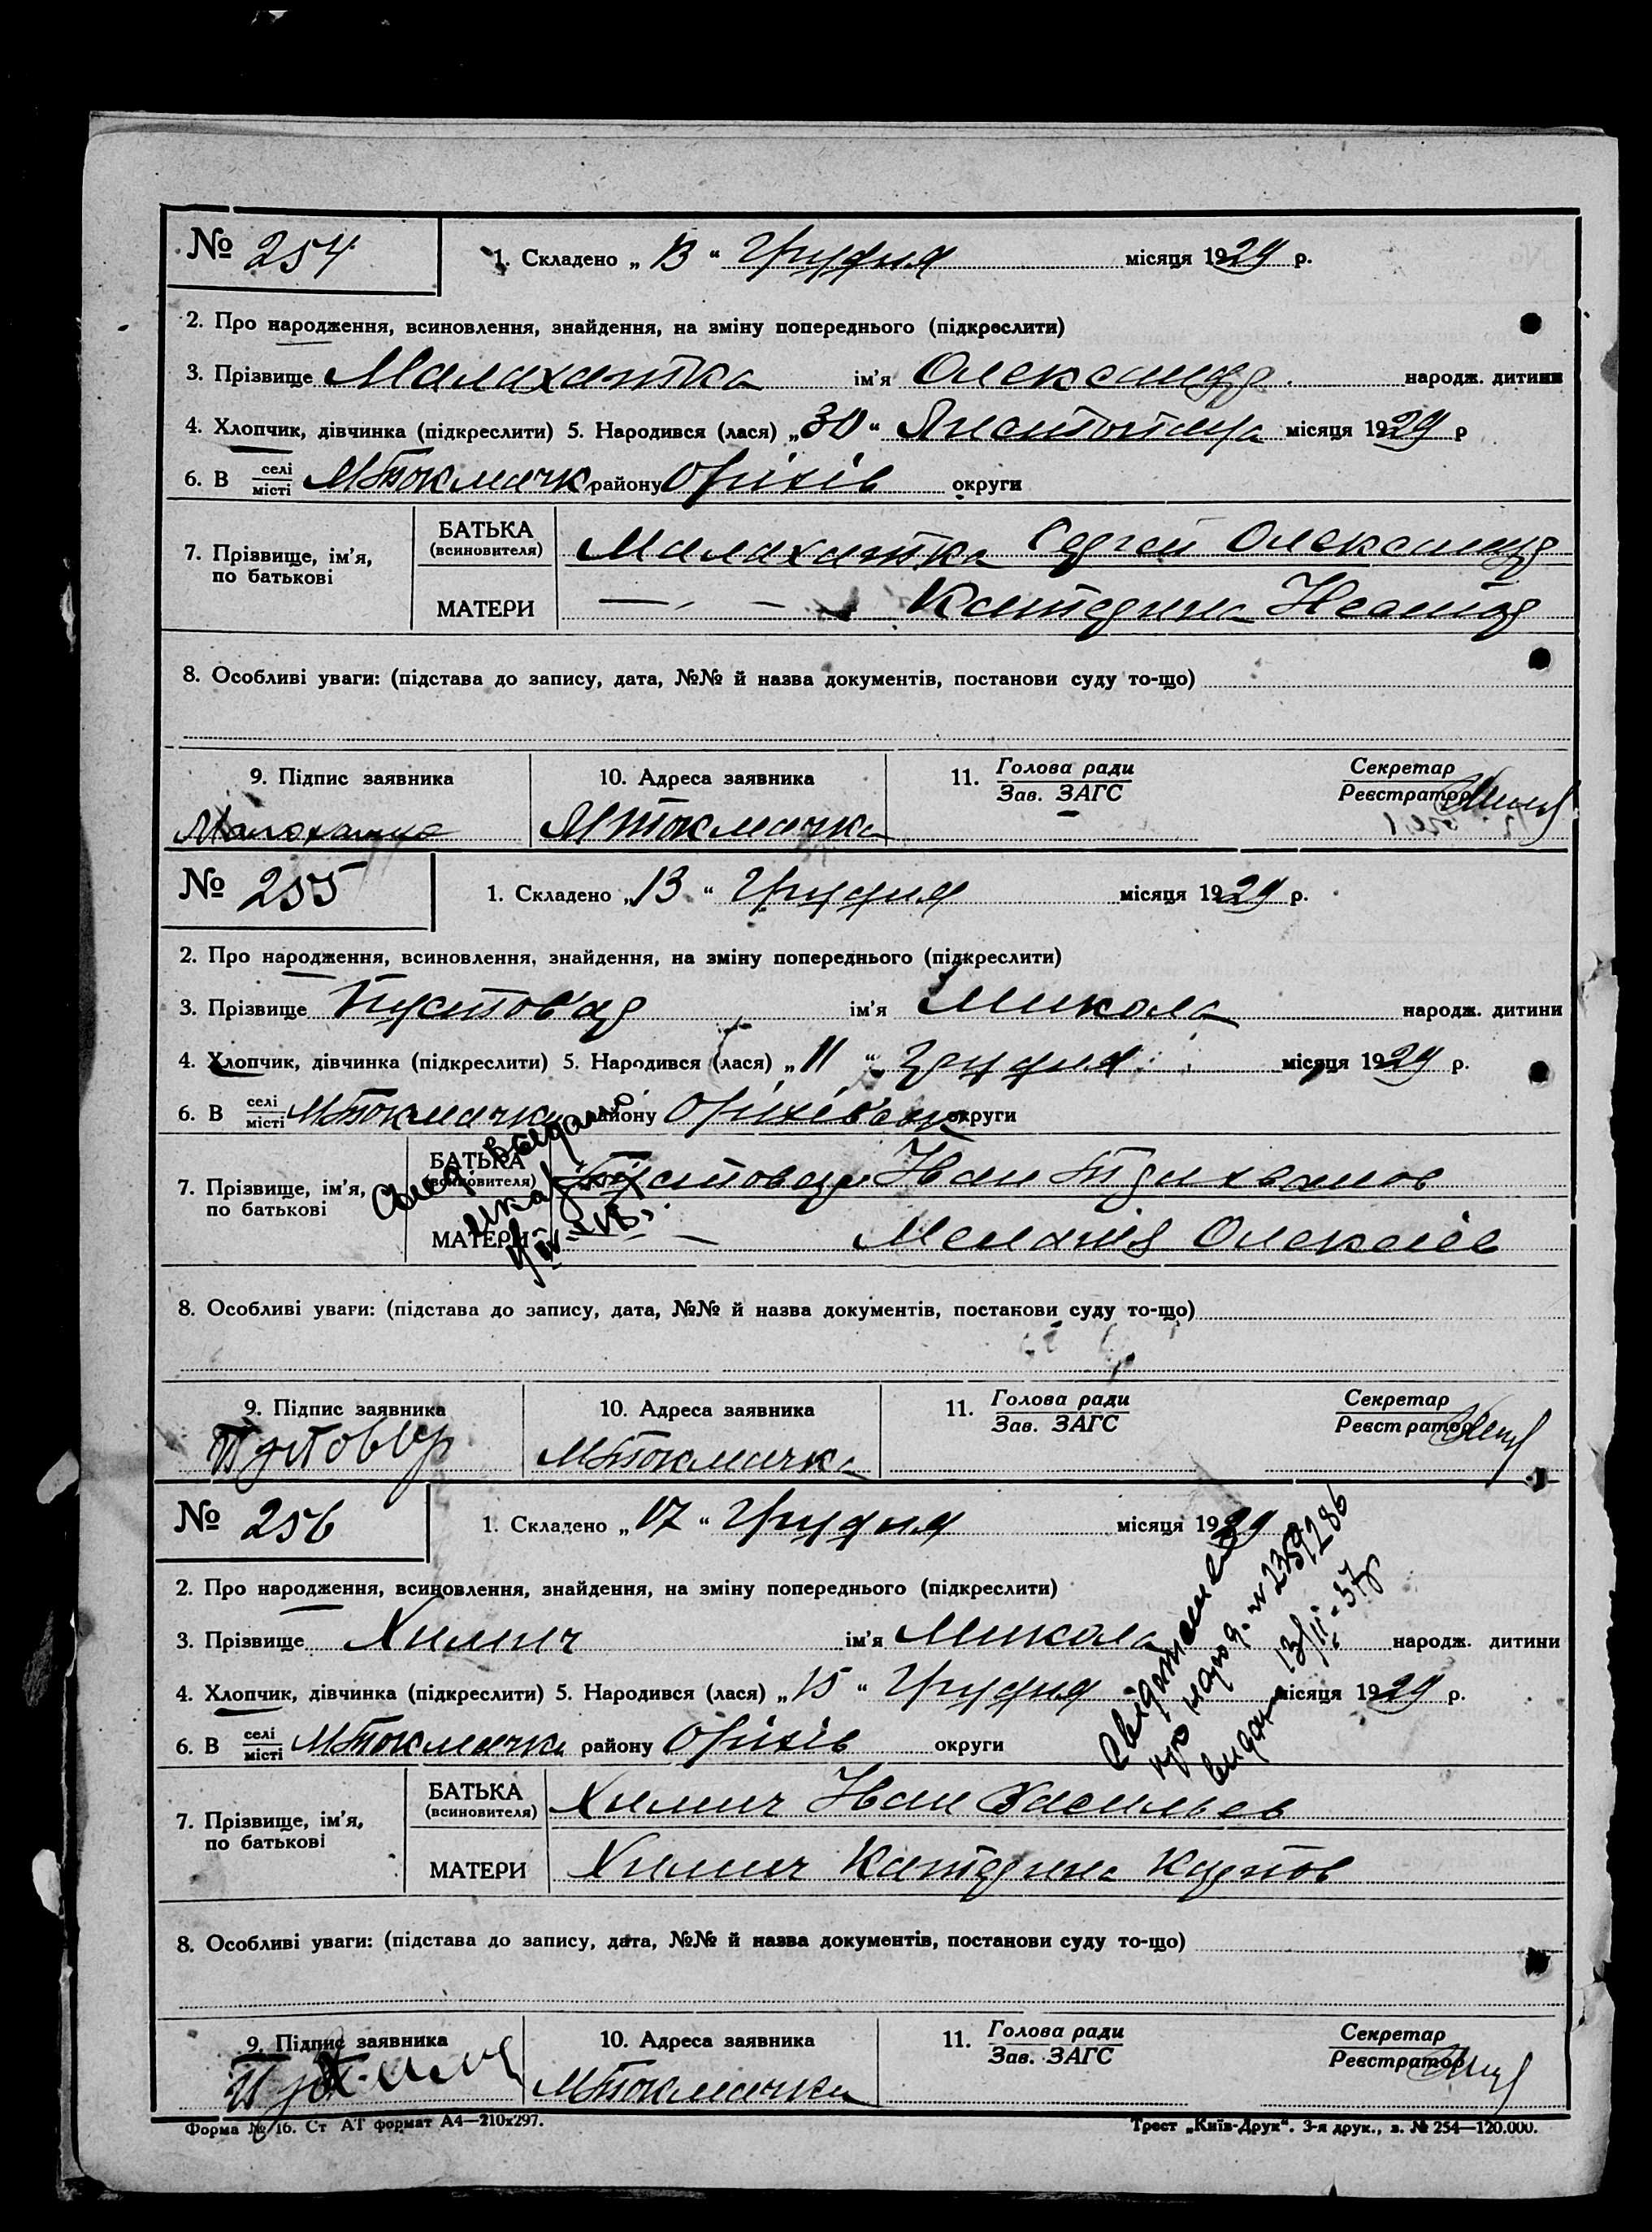 № 254
1. Складено „ 13 “ Грудня місяця 1929 р.
2. Про народження, всиновлення, знайдення, на зміну попереднього (підкреслити)
3. Прізвище Малахатка ім'я Олександр народж. дитини
4. Хлопчик, дівчинка (підкреслити) 5. Народився (лася) „30“ місяця 1929 р
6. В селі місті МТокмачк району Оріхів округи
7. Прізвище, ім'я, по батькові
БАТЬКА (всиновителя) Малахатка Сергей Олександ
МАТЕРИ — „ — Катерина
8. Особливі уваги: (підстава до запису, дата, №№ й назва документів, постанови суду то-що)
9. Підпис заявника 10. Адреса заявника 11. Голова ради Зав. ЗАГС Секретар Реєстратор
МТокмачка
№ 255
1. Складено „ 13 “ Грудня місяця 1929 р.
2. Про народження, всиновлення, знайдення, на зміну попереднього (підкреслити)
3. Прізвище Пустов'ар ім'я Микола народж. дитини
4. Хлопчик, дівчинка (підкреслити) 5. Народився (лася) „ 11 “ грудня місяця 1929 р.
6. В селі місті МТокмачки району Оріхівськ округи
7. Прізвище, ім'я, по батькові
БАТЬКА (всиновителя) Іван
МАТЕРИ — Меланія Олексіев
8. Особливі уваги: (підстава до запису, дата, №№ й назва документів, постанови суду то-що)
9. Підпис заявника 10. Адреса заявника 11. Голова ради Зав. ЗАГС Секретар Реєстратор
МТокмачка
№ 256
1. Складено „ 17 “ Грудня місяця 1929
2. Про народження, всиновлення, знайдення, на зміну попереднього (підкреслити)
3. Прізвище Химич ім'я Микола народж. дитини
4. Хлопчик, дівчинка (підкреслити) 5. Народився (лася) „ 15 “ Грудня місяця 1929 р.
6. В селі місті МТокмачки району Оріхів округи
про народ. № 239286
видано 13/II-37р
7. Прізвище, ім'я, по батькові
БАТЬКА (всиновителя) Химич Іван Васильев
МАТЕРИ Химич Катерина Карпов
8. Особливі уваги: (підстава до запису, дата, №№ й назва документів, постанови суду то-що)
9. Підпис заявника 10. Адреса заявника 11. Голова ради Зав. ЗАГС Секретар Реєстратор
МТокмачки
Форма № 16. Ст АТ формат А4—210х297.
Трест „Київ-Друк“. 3-я друк., з. № 254—120.000.